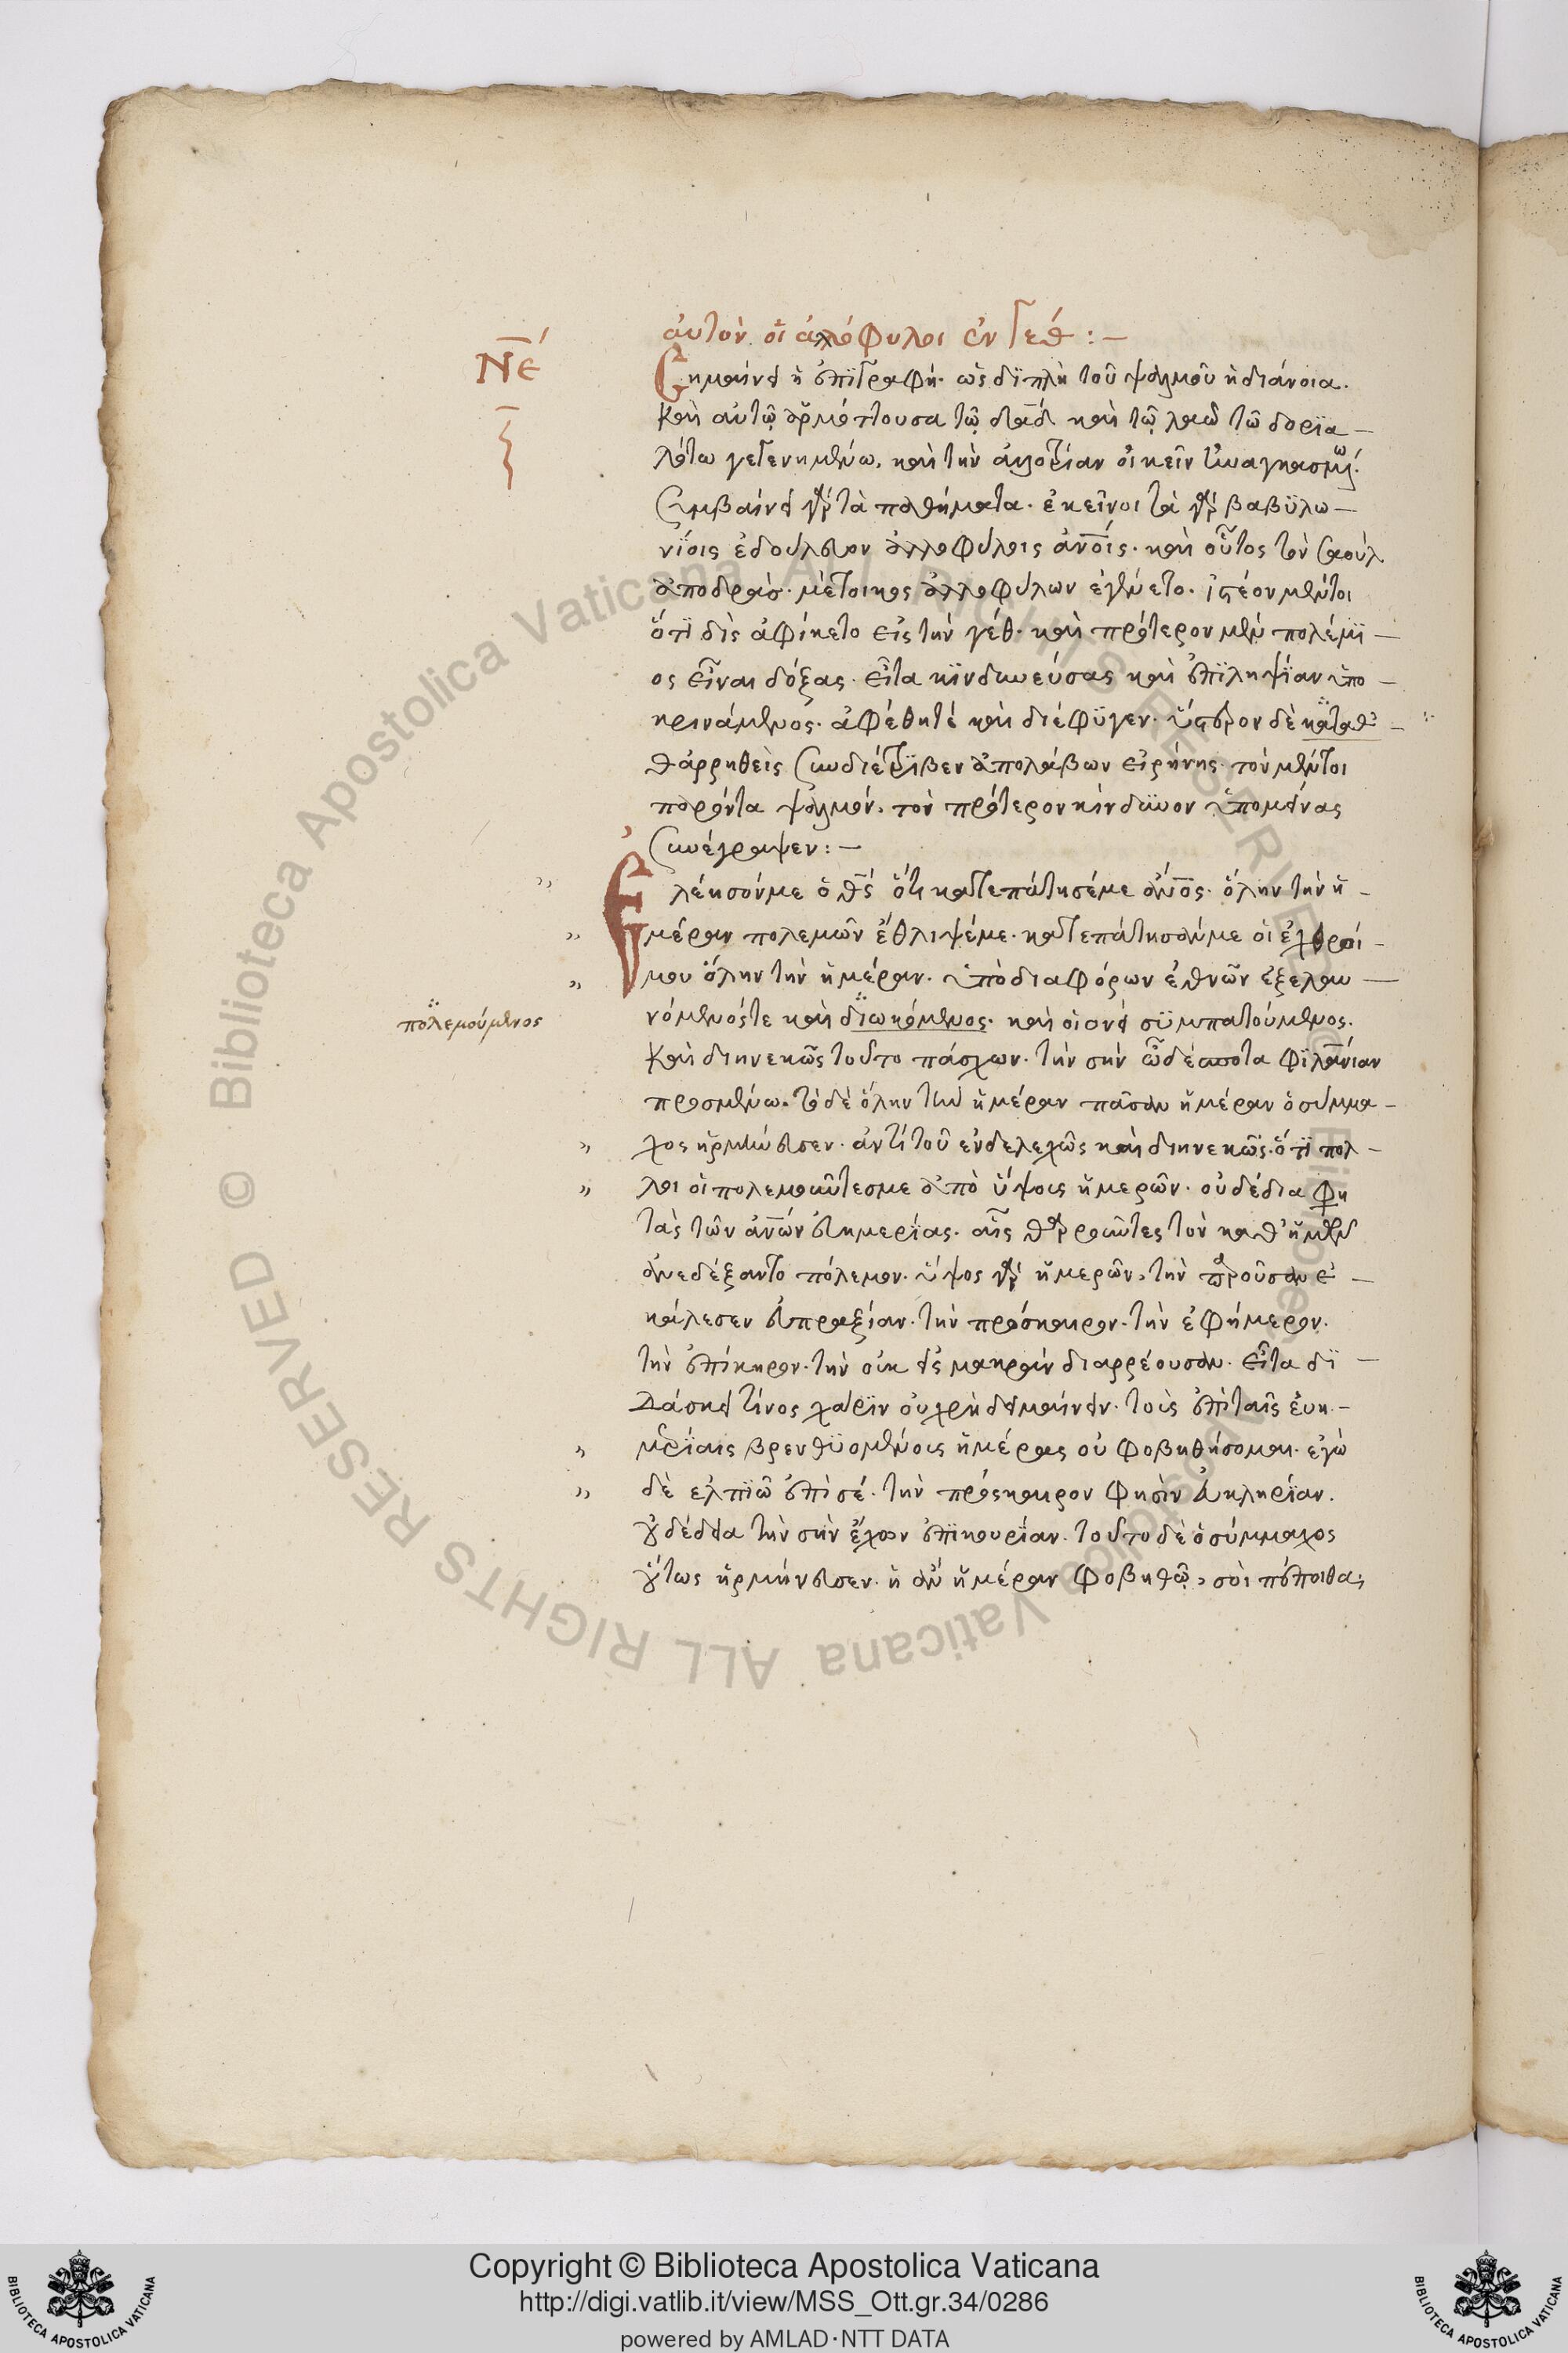 ΝΕ´
αὐτὸν οἱ ἀλλόφυλοι ἐν Γέθ : —
Σημαίνει ἡ ἐπιγραφή. ὡς διπλῆ τοῦ ψαλμοῦ ἡ διάνοια.
καὶ αὐτῷ ἁρμόττουσα τῷ δᾱδ καὶ τῷ λαῷ τῷ δορια —
λότω γεγενημένω. καὶ τὴν ἀλλοτρίαν οἰκεῖν
Συμβαίνει γὰρ τὰ παθήματα. ἐκεῖνοι τὲ γὰρ βαβυλω —
νίοις ἐδούλευον ἀλλοφύλοις ἀνοις. καὶ οὗτος τὸν Σαοὺλ
ἀποδράσ. μέτοικος ἀλλοφύλων ἐγένετο. ἰστέον μέντοι
ὅτι δὶς ἀφίκετο εἰς τὴν γέθ. καὶ πρότερον μὲν πολέμι —
ος εἶναι δόξας. εἶτα κινδυνεύσας καὶ ἐπιληψίαν ὑπο —
κρινάμενος. ἀφέθητέ καὶ διέφυγεν. ὕστερον δὲ καταθ —
θάρρηθεὶς συνδιέτριβεν ἀπολάβων εἰρήνης. τὸν μέντοι
παρόντα ψαλμόν. τὸν πρότερον κίνδυνον ὑπομείνας
συνέγραψεν : —
Ἐλέησόν με ὁ θς ὅτι κατεπάτησέ με ἀνος. ὅλην τὴν ἡ —
μέραν πολεμῶν ἔθλιψέ με. κατεπάτησάν με οἱ ἐχθροί —
μου ὅλην τὴν ἡμέραν. ὑπὸ διαφόρων ἐθνῶν ἐξελαυ —
πολεμούμενος
νόμενός τε καὶ διωκόμενος. καὶ οἱονεὶ συμπατούμενος.
Καὶ διηνεκῶς τοῦτο πάσχων. τὴν σὴν ὦ δέσποτα φιλανίαν
προσμένω. τὸ δὲ ὅλην τὴν ἡμέραν πᾶσαν ἡμέραν ὁ σύμμα —
χος ἡρμήνευσεν. ἀντὶ τοῦ ἐνδελεχῶς καὶ διηνεκῶς. ὅτι πολ —
λοι οἱ πολεμοῦντεσμε ἀπὸ ὕψους ἡμερῶν. οὐ δέδια φη
τὰς τῶν ἀνων εὐημερίας. αἷς θαρροῦντες τὸν καθ' ἡμῶν
ἀνεδέξαντο πόλεμον. ὕψος γὰρ ἡμερῶν, τὴν παροῦσαν ἐ —
κάλεσεν εὐπραξίαν. τὴν πρόσκαιρον. τὴν ἐφήμερον.
τὴν ἐπίκηρον. τὴν οὐκ εἰς μακρὰν διαρρέουσαν. εἶτα δι —
δάσκει τίνος χάριν οὐ χρὴ δειμαίνειν. τοὺς ἐπὶ ταῖς εὐη —
μερίαις βρενθυομένους ἡμέρας οὐ φοβηθήσομαι. ἐγὼ
δὲ ἐλπιῶ ἐπὶ σέ. τὴν πρόσκαιρον φησὶν εὐκληρίαν.
οὐ δέδεια τὴν σὴν ἔχων ἐπικουρίαν. τοῦτο δὲ ὁ σύμμαχος
οὕτως ἡρμήνευσεν. ἡ ἂν ἡμέραν φοβηθῶ, σοὶ πέποιθα;
Copyright © Biblioteca Apostolica Vaticana
http://digi.vatlib.it/view/MSS_Ott.gr.34/0286
powered by AMLAD·NTT DATA
BIBLIOTECA APOSTOLICA VATICANA
BIBLIOTECA APOSTOLICA VATICANA
© Biblioteca Apostolica Vaticana ALL RIGHTS RESERVED
© Biblioteca Apostolica Vaticana ALL RIGHTS RESERVED